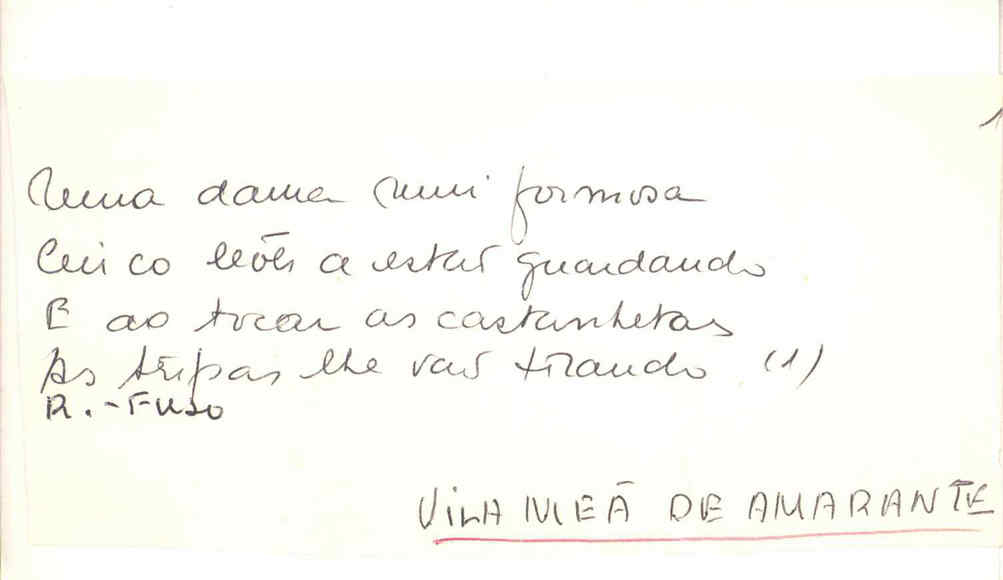 1
Uma dama mui formosa
Cinco leões a estão guardando
E ao tocar as castanhetas
As tripas lhe vão tirando (1)
R. - Fuso
VILA MEÃ DE AMARANTE